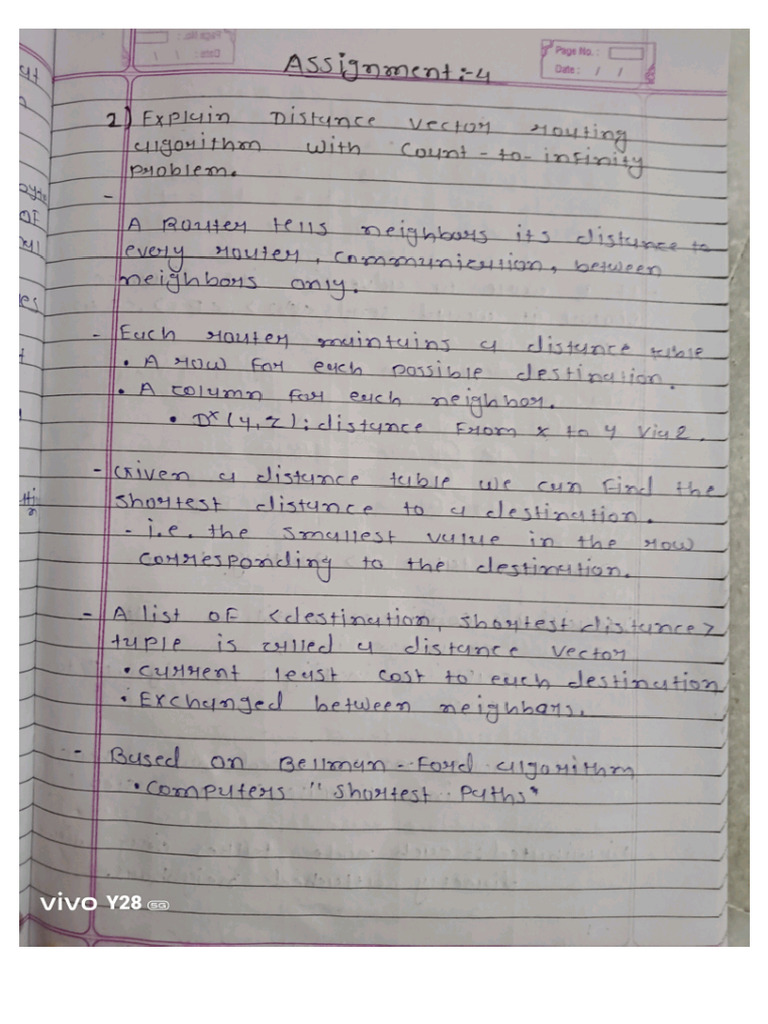 Assignment:-4
Page No. :
Date : / /
2) Explain Distance vector routing
algorithm with count-to-infinity
problem.
-
A Router tells neighbors its distance to
every router, communication, between
neighbors only.
- Each router maintains a distance table
• A row for each possible destination.
• A column for each neighbor.
• Dx (y,z) : distance From x to y via 2.
- Given a distance table we can find the
shortest distance to a destination.
- i.e. the smallest value in the row
corresponding to the destination.
- A list OF <destination, shortest distance>
tuple is called a distance vector
• current least cost to each destination
• Exchanged between neighbors.
- Based on Bellman-Ford algorithm
• computers "shortest paths"
vivo Y28 5G